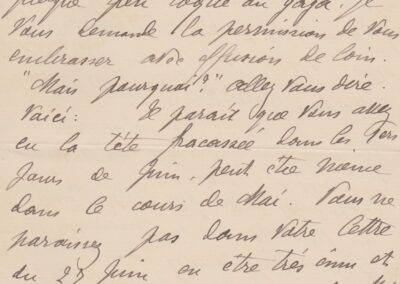 vous demande la permission de vous
embrasser avec effusion de loin.
"Mais pourquoi?" allez vous dire.
Voici: Il parait que vous avez
eu la tête fracassée dans les 1ers
jours de Juin, peut être même
dans le cours de Mai. Vous ne
paraissez pas dans votre lettre
du 25 Juin en être très ému et